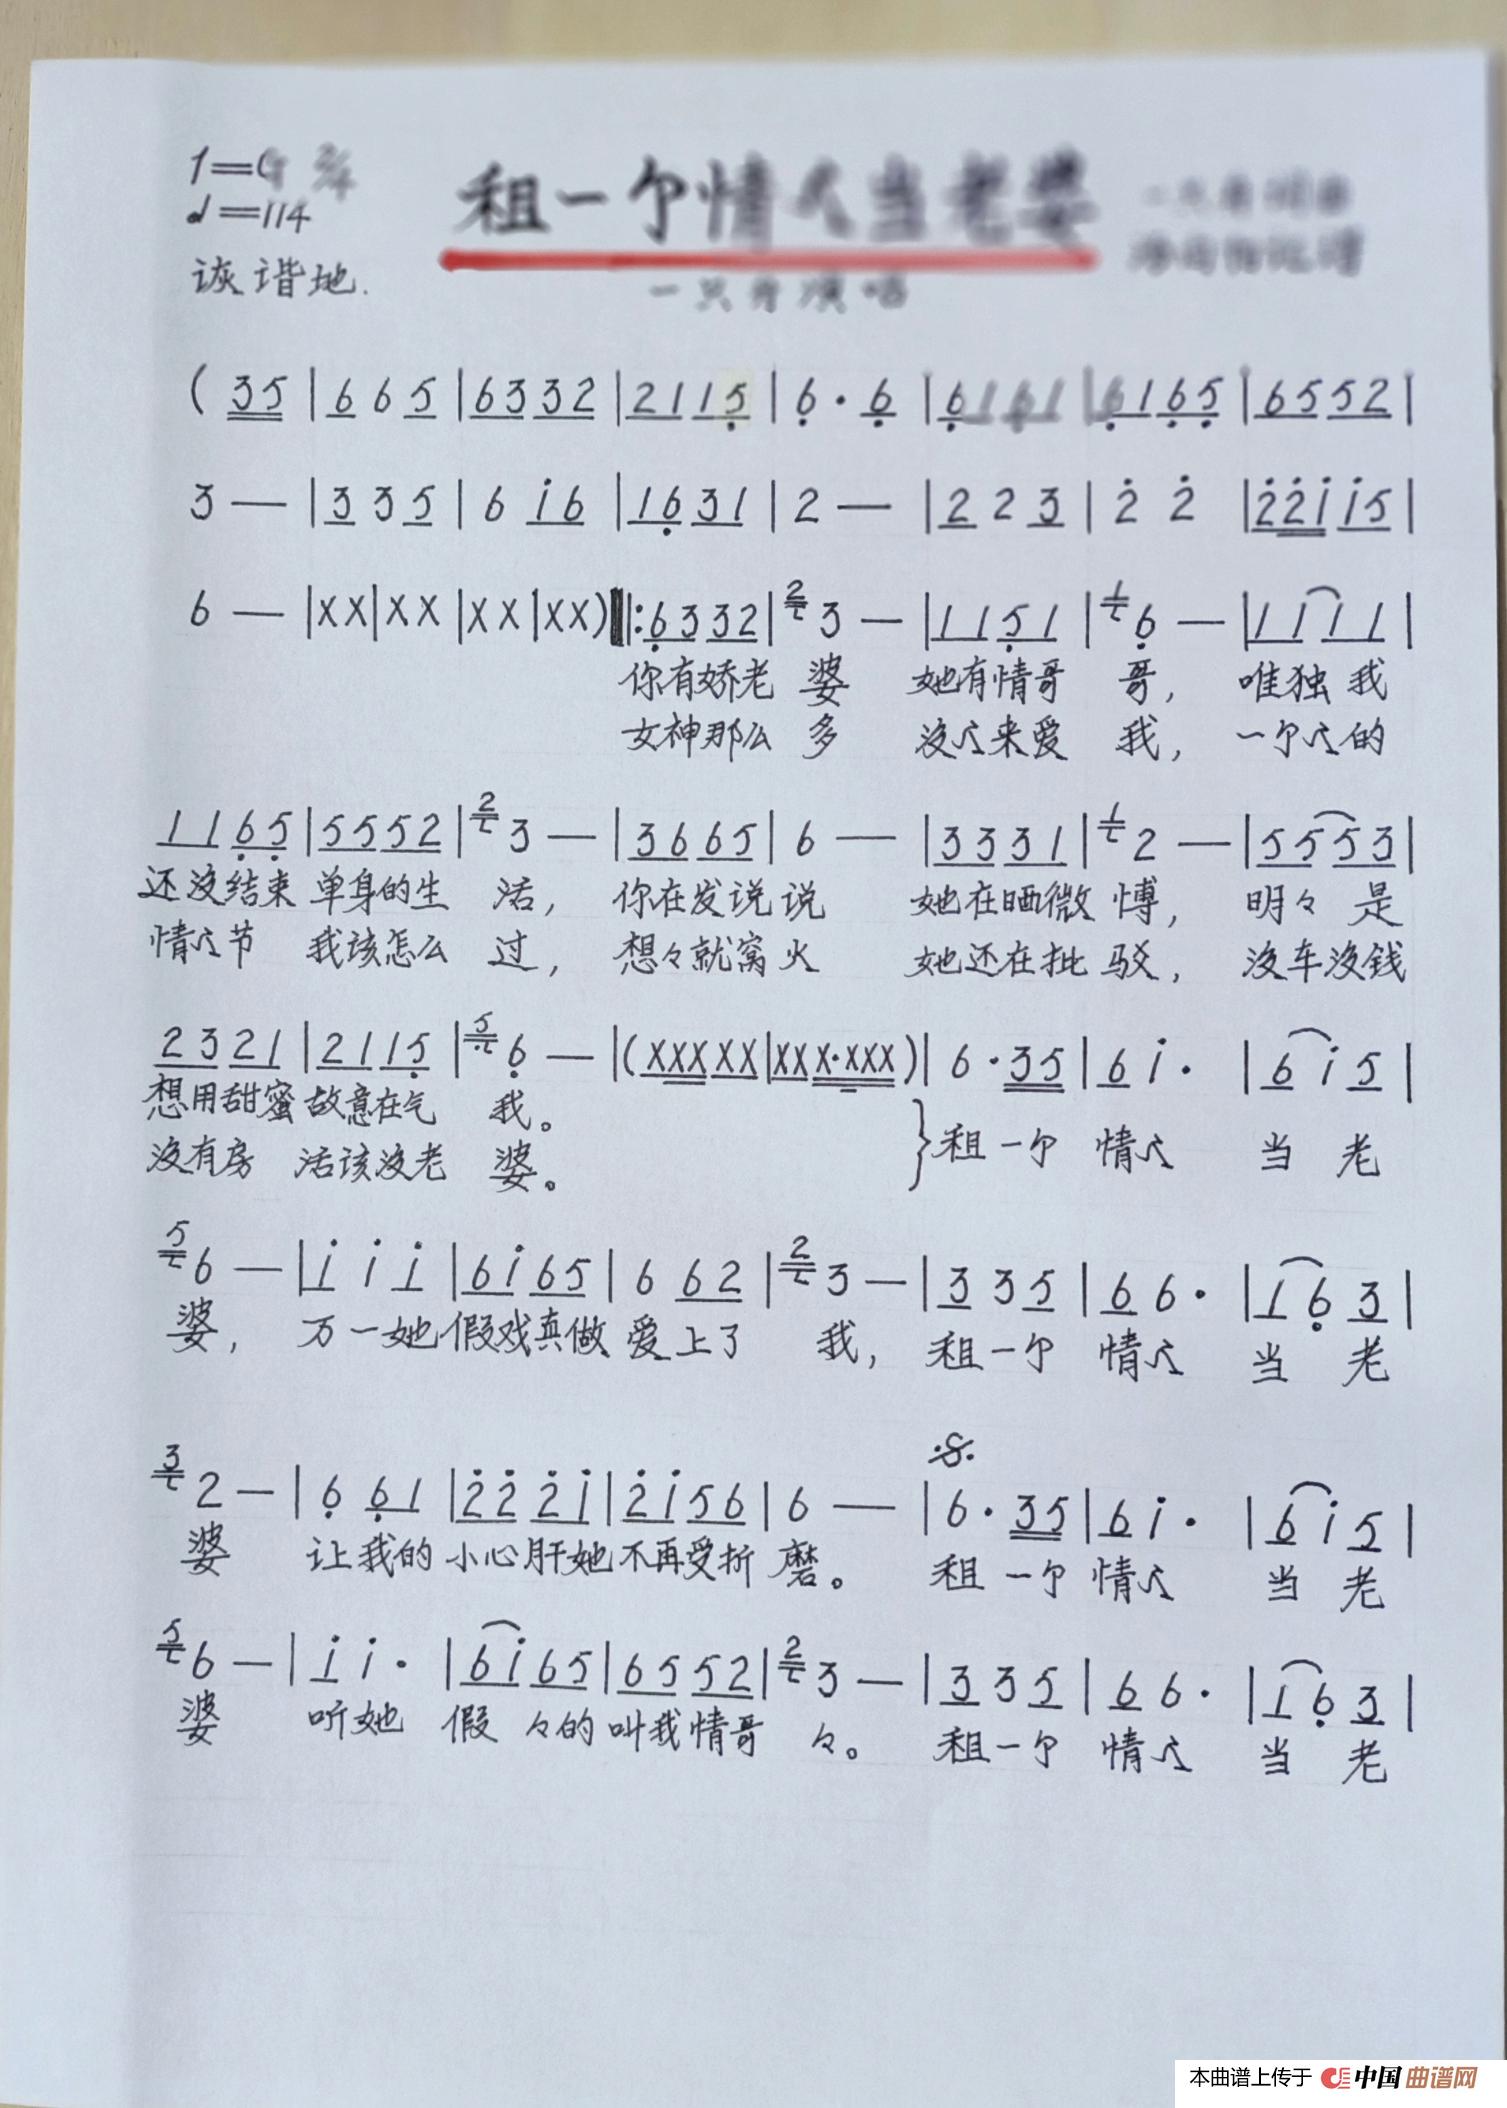 1=G 2/4
♩=114
诙谐地.
租一个情人当老婆
一只舟演唱
( 35 | 6 6 5 | 6332 | 2115 | 6 · 6 | 6161 | 6165 | 6552 |
3 — | 3 3 5 | 6 i6 | 1631 | 2 — | 2 2 3 | 2 2 | 22i i5 |
6 — | XX | XX | XX | XX ) ‖: 6332 | 2 3 — | 1151 | 1 6 — | 1111 |
你有娇老 婆 她有情哥 哥, 唯独我
女神那么 多 没人来爱 我, 一个人的
1165 | 5552 | 2 3 — | 3665 | 6 — | 3331 | 1 2 — | 5553 |
还没结束 单身的生 活, 你在发说说 她在晒微 博, 明々是
情人节 我该怎么 过, 想々就窝火 她还在批 驳, 没车没钱
2321 | 2115 | 5 6 — | (XXXXX | XXX·XXX) | 6 · 35 | 6 i · | 6 i 5 |
想用甜蜜 故意在气 我。
没有房 活该没老 婆。 }租一个 情人 当 老
5 6 — | i i i | 6i65 | 6 62 | 2 3 — | 3 3 5 | 6 6 · | 1 6 3 |
婆, 万一她 假戏真做 爱上了 我, 租一个 情人 当 老
3 2 — | 6 61 | 222i | 2i56 | 6 — | 6 · 35 | 6 i · | 6 i 5 |
婆 让我的 小心肝她 不再受折 磨。 租一个 情人 当 老
5 6 — | i i · | 6i65 | 6552 | 2 3 — | 3 3 5 | 6 6 · | 1 6 3 |
婆 听她 假々的 叫我情哥 々。 租一个 情人 当 老
本曲谱上传于 中国曲谱网